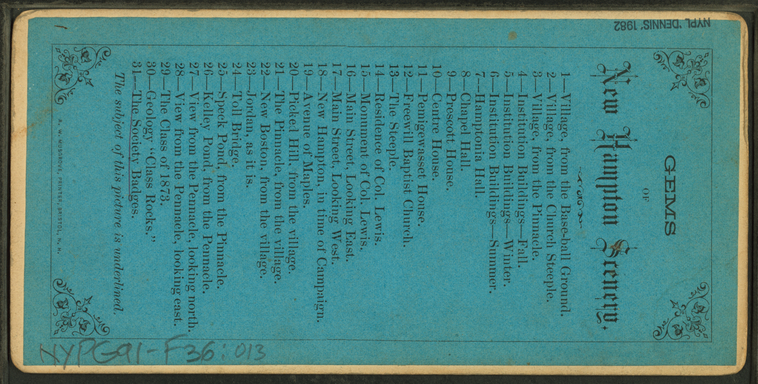 GEMS
OF
New Hampton Scenery.
1—Village, from the Base-ball Ground.
2—Village, from the Church Steeple.
3—Village, from the Pinnacle.
4—Institution Buildings—Fall.
5—Institution Buildings—Winter.
6—Institution Buildings—Summer.
7—Hamptonia Hall.
8—Chapel Hall.
9—Prescott House.
10—Centre House.
11—Pemigewasset House.
12—Freewill Baptist Church.
13—The Steeple.
14—Residence of Col. Lewis.
15—Monument of Col. Lewis.
16—Main Street, Looking East.
17—Main Street, Looking West.
18—New Hampton, in time of Campaign.
19—Avenue of Maples.
20—Picket Hill, from the village.
21—The Pinnacle, from the village.
22—New Boston, from the village.
23—Jordan, as it is.
24—Toll Bridge.
25—Speck Pond, from the Pinnacle.
26—Kelley Pond, from the Pennacle.
27—View from the Pennacle, looking north.
28—View from the Pennacle, looking east.
29—The Class of 1873.
30—Geology "Class Rocks."
31—The Society Badges.
The subject of this picture is underlined.
NYPL 'DENNIS' 1982
NYPG91-F36:013